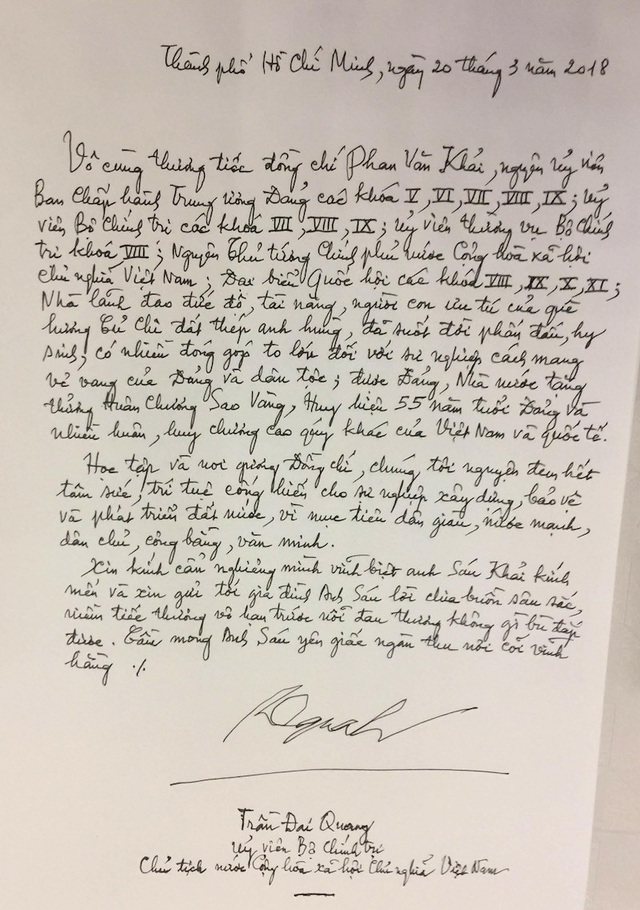 Thành phố Hồ Chí Minh, ngày 20 tháng 3 năm 2018
Vô cùng thương tiếc đồng chí Phan Văn Khải, nguyên Ủy viên
Ban Chấp hành Trung ương Đảng các khóa V, VI, VII, VIII, IX; Ủy
viên Bộ Chính trị các khóa VII, VIII, IX; Ủy viên thường vụ Bộ Chính
trị khóa VIII; Nguyên Thủ tướng Chính phủ nước Cộng hòa xã hội
chủ nghĩa Việt Nam; Đại biểu Quốc hội các khóa VIII, IX, X, XI;
Nhà lãnh đạo đức độ, tài năng, người con ưu tú của quê
hương Củ Chi đất thép anh hùng, đã suốt đời phấn đấu, hy
sinh, có nhiều đóng góp to lớn đối với sự nghiệp cách mạng
vẻ vang của Đảng và dân tộc; được Đảng, Nhà nước tặng
thưởng Huân Chương Sao Vàng, Huy hiệu 55 năm tuổi Đảng và
nhiều huân, huy chương cao quý khác của Việt Nam và quốc tế.
Học tập và noi gương Đồng chí, chúng tôi nguyện đem hết
tâm sức, trí tuệ cống hiến cho sự nghiệp xây dựng, bảo vệ
và phát triển đất nước, vì mục tiêu dân giàu, nước mạnh,
dân chủ, công bằng, văn minh.
Xin kính cẩn nghiêng mình vĩnh biệt anh Sáu Khải kính
mến và xin gửi tới gia đình Anh Sáu lời chia buồn sâu sắc,
niềm tiếc thương vô hạn trước nỗi đau thương không gì bù đắp
được. Cầu mong Anh Sáu yên giấc ngàn thu nơi cõi vĩnh
hằng ./.
Trần Đại Quang
Ủy viên Bộ Chính trị
Chủ tịch nước Cộng hòa xã hội Chủ nghĩa Việt Nam